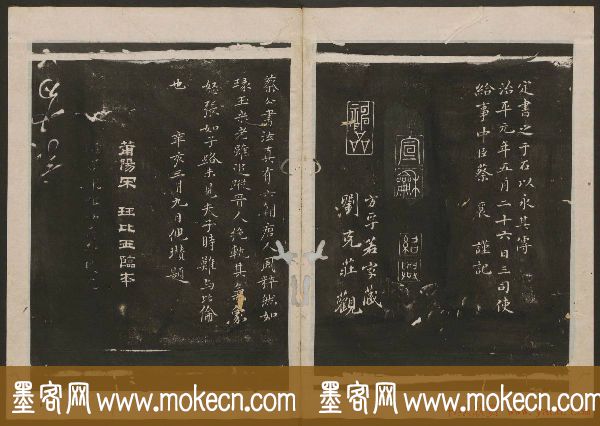 定書之于石以永其傳
治平元年五月二十六日三司使
給事中臣蔡襄謹記
宣龢
紹興
方平若家藏
劉克莊觀
蔡公書法真有六朝唐人風粹然如
琢玉米老雖追蹤晉人絶軌其氣象
怒張如子路未見夫子時難與比倫
也 辛亥三月九日倪瓚題
莆陽宋珏比玉臨本
墨客网 www.mokecn.com
墨客网 www.mokecn.com